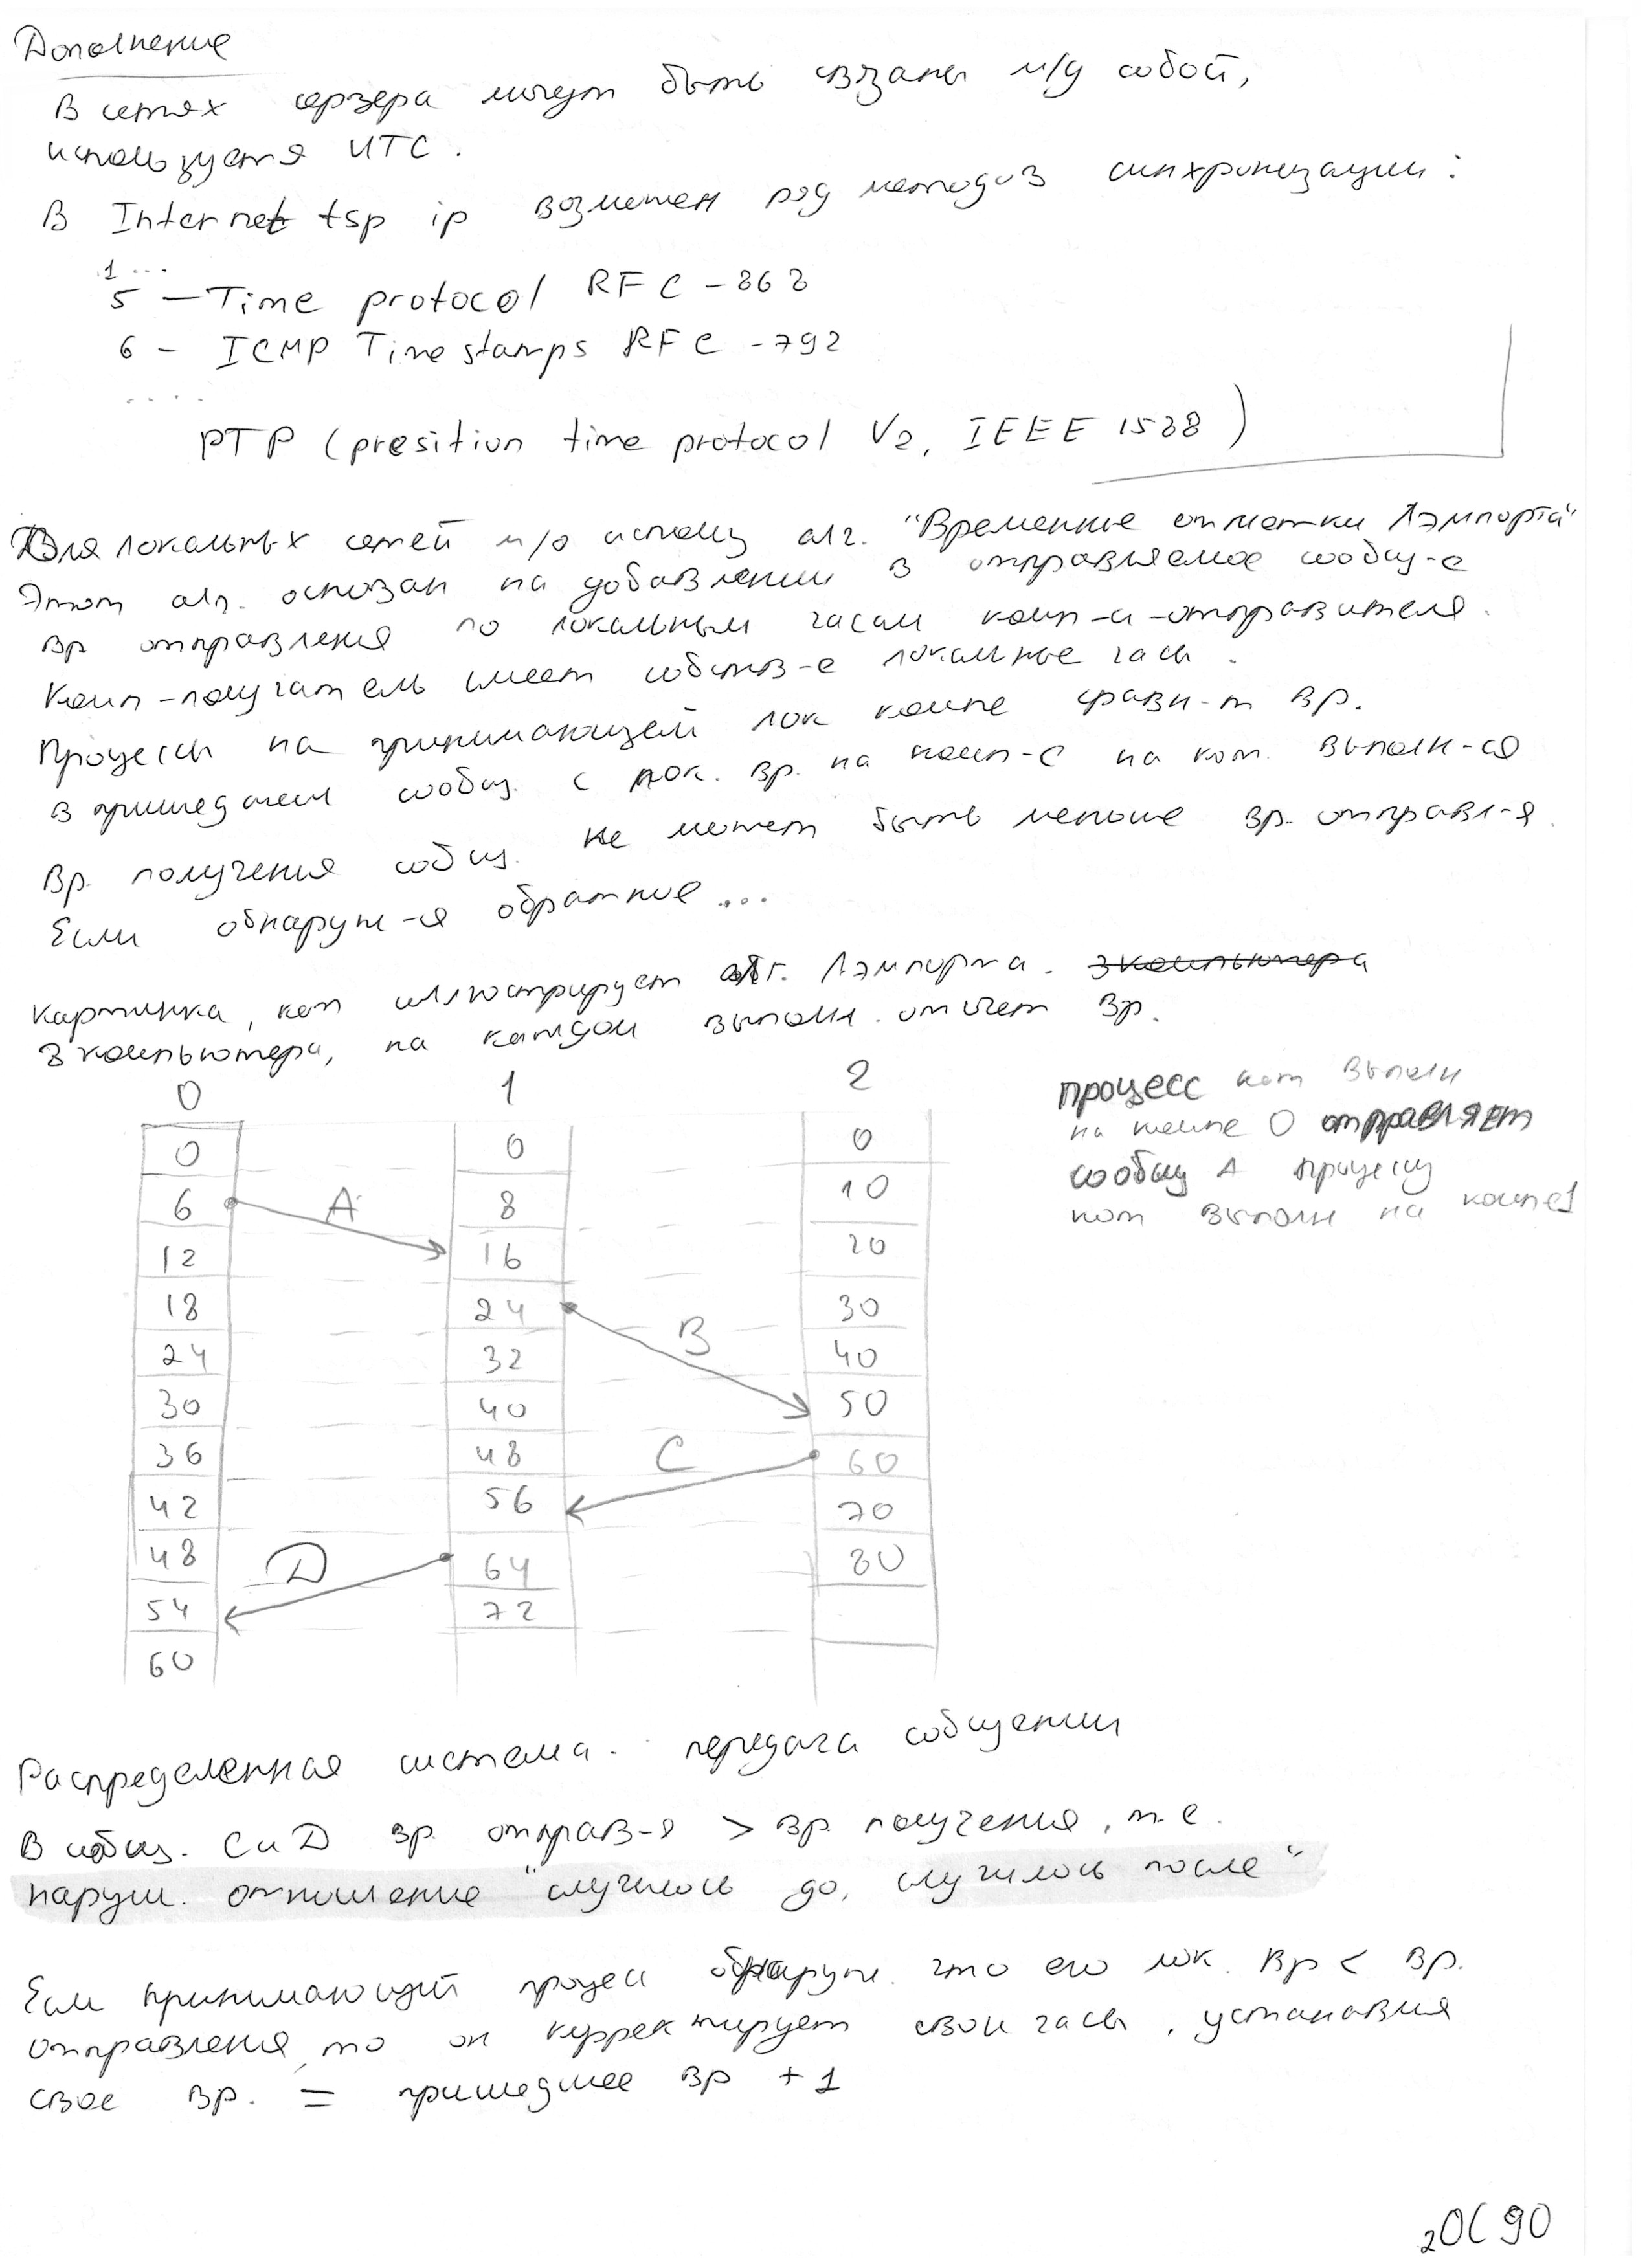 Дополнение
В сетях сервера могут быть связаны м/у собой,
используется UTC.
В Internet tsp ip возможен ряд методов синхронизации:
1 ...
5 — Time protocol RFC - 868
6 - ICMP Timestamps RFC - 792
....
PTP (presition time protocol V2, IEEE 1588)
Для локальных сетей м/о использ алг. "Временные отметки Лэмпорта"
Этот алг. основан на добавлении в отправляемое сообщ-е
вр отправления по локальным часам комп-а-отправителя.
Комп-получатель имеет собств-е локальные часы.
Процессы на принимающей лок компе сравн-т вр.
в пришедшем сообщ. с лок. вр. на комп-е на кот. выполн-ся
Вр. получения сообщ. не может быть меньше вр. отправл-я.
Если обнаруж-ся обратное ...
Картинка, кот иллюстрирует алг. Лэмпорта. 3 компьютера
3 компьютера, на каждом выполн. отсчет вр.
0 1 2
процесс кот выполн
на компе 0 отправляет
сообщ А процессу
кот выполн на компе1
0 0 0
6 A 8 10
12 16 20
18 24 30
24 32 B 40
30 40 50
36 48 C 60
42 56 70
48 D 64 80
54 72
60
Распределенная система - передача сообщении
В сообщ. C и D вр. отправ-я > вр. получения, т.е.
наруш. отношение "случилось до, случилось после"
Если принимающий процесс обнаруж. что его лок. вр < вр.
отправления, то он корректирует свои часы, установив
свое вр. = пришедшее вр + 1
2ОС 90